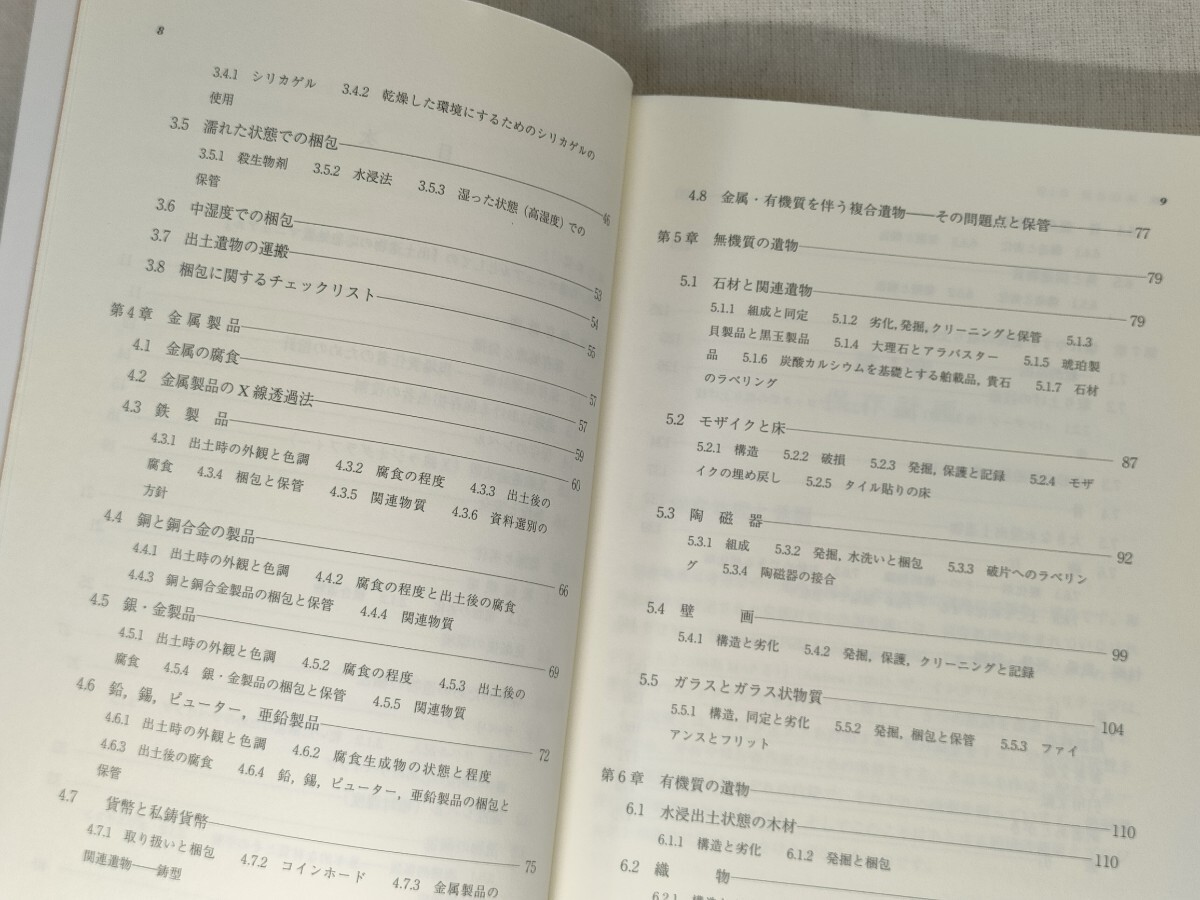 8
3.4.1 シリカゲル 3.4.2 乾燥した環境にするためのシリカゲルの
使用
3.5 濡れた状態での梱包 46
3.5.1 殺生物剤 3.5.2 水浸法 3.5.3 湿った状態(高湿度)での
保管
3.6 中湿度での梱包 53
3.7 出土遺物の運搬 54
3.8 梱包に関するチェックリスト 55
第4章 金属製品 57
4.1 金属の腐食 57
4.2 金属製品のX線透過法 59
4.3 鉄製品 60
4.3.1 出土時の外観と色調 4.3.2 腐食の程度 4.3.3 出土後の
腐食 4.3.4 梱包と保管 4.3.5 関連物質 4.3.6 資料選別の
方針
4.4 銅と銅合金の製品 66
4.4.1 出土時の外観と色調 4.4.2 腐食の程度と出土後の腐食
4.4.3 銅と銅合金製品の梱包と保管 4.4.4 関連物質
4.5 銀・金製品 69
4.5.1 出土時の外観と色調 4.5.2 腐食の程度 4.5.3 出土後の
腐食 4.5.4 銀・金製品の梱包と保管 4.5.5 関連物質
4.6 鉛,錫,ピューター,亜鉛製品 72
4.6.1 出土時の外観と色調 4.6.2 腐食生成物の状態と程度
4.6.3 出土後の腐食 4.6.4 鉛,錫,ピューター,亜鉛製品の梱包と
保管
4.7 貨幣と私鋳貨幣 75
4.7.1 取り扱いと梱包 4.7.2 コインホード 4.7.3 金属製品の
関連遺物——鋳型
9
4.8 金属・有機質を伴う複合遺物——その問題点と保管 77
第5章 無機質の遺物 79
5.1 石材と関連遺物 79
5.1.1 組成と同定 5.1.2 劣化,発掘,クリーニングと保管 5.1.3
貝製品と黒玉製品 5.1.4 大理石とアラバスター 5.1.5 琥珀製
品 5.1.6 炭酸カルシウムを基礎とする舶載品,貴石 5.1.7 石材
のラベリング
5.2 モザイクと床 87
5.2.1 構造 5.2.2 破損 5.2.3 発掘,保護と記録 5.2.4 モザ
イクの埋め戻し 5.2.5 タイル貼りの床
5.3 陶磁器 92
5.3.1 組成 5.3.2 発掘,水洗いと梱包 5.3.3 破片へのラベリン
グ 5.3.4 陶磁器の接合
5.4 壁画 99
5.4.1 構造と劣化 5.4.2 発掘,保護,クリーニングと記録
5.5 ガラスとガラス状物質 104
5.5.1 構造,同定と劣化 5.5.2 発掘,梱包と保管 5.5.3 ファイ
アンスとフリット
第6章 有機質の遺物 110
6.1 水浸出土状態の木材 110
6.1.1 構造と劣化 6.1.2 発掘と梱包
6.2 織物